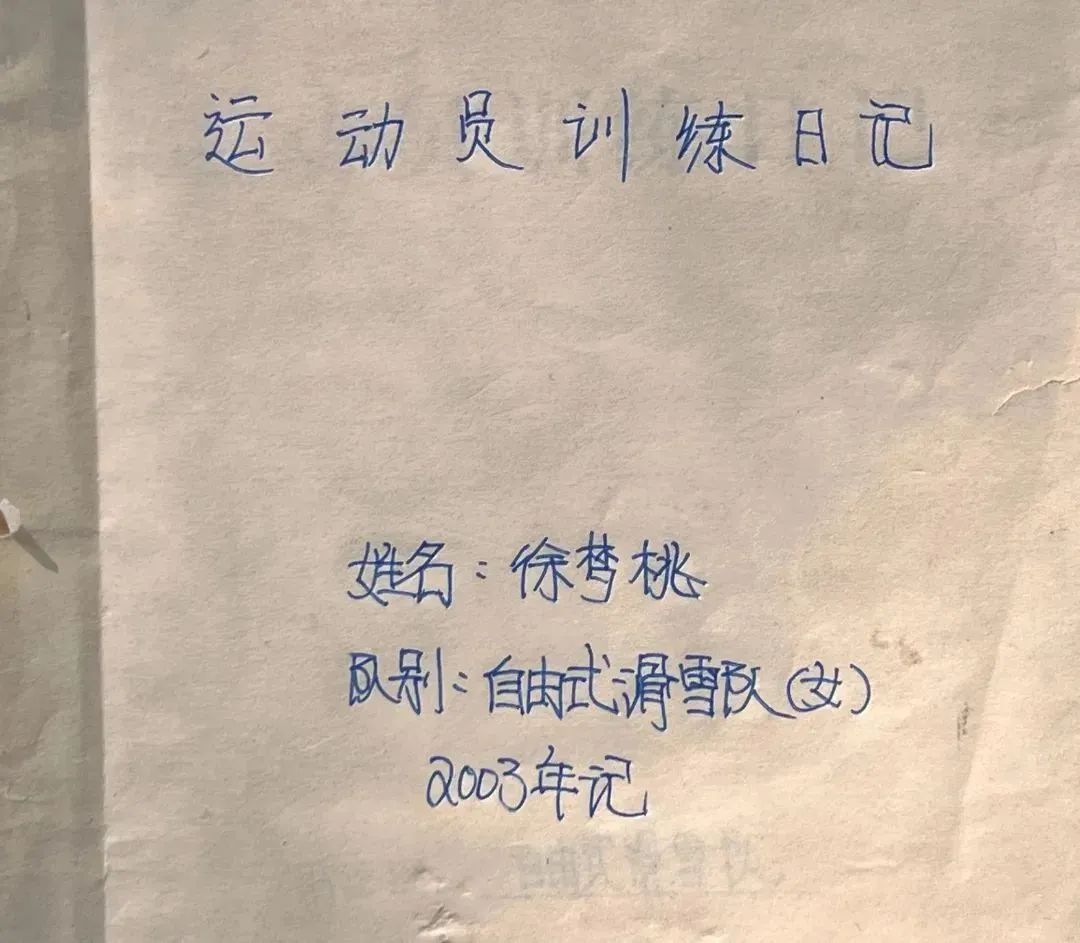 运动员训练日记
姓名:徐梦桃
队别:自由式滑雪队(女)
2003年记